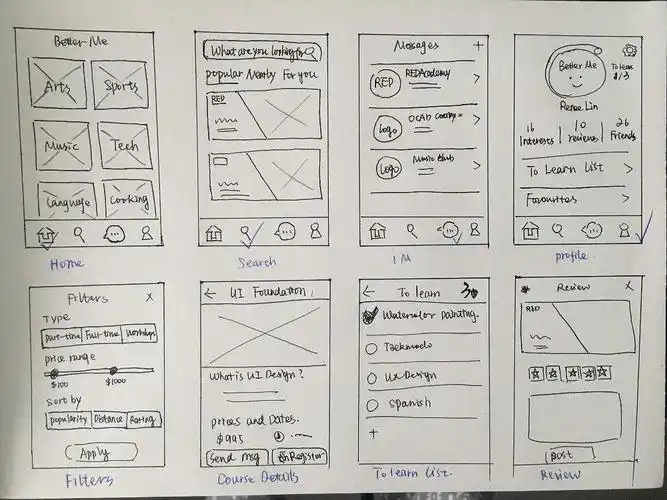 Better Me
Arts
Sports
Music
Tech
Language
Cooking
Home
What are you looking for
popular Nearby For you
RED
Search
Messages +
RED
REDAcademy
Logo
OCAD
Logo
Music Club
IM
Better Me
To learn
Renee Lin
16
Interests
10
reviews
26
Friends
To Learn List
Favourites
profile.
Filters X
Type
Part-time
Full-time
Workshops
price range
$100
$1000
Sort by
popularity
Distance
Rating
Apply
Filters
UI Foundation
What is UI Design?
prices and Dates.
$995
Send msg
Register
Course Details
To learn
Watercolor painting.
UX Design
Spanish
+
To learn List.
Review X
RED
post
Review